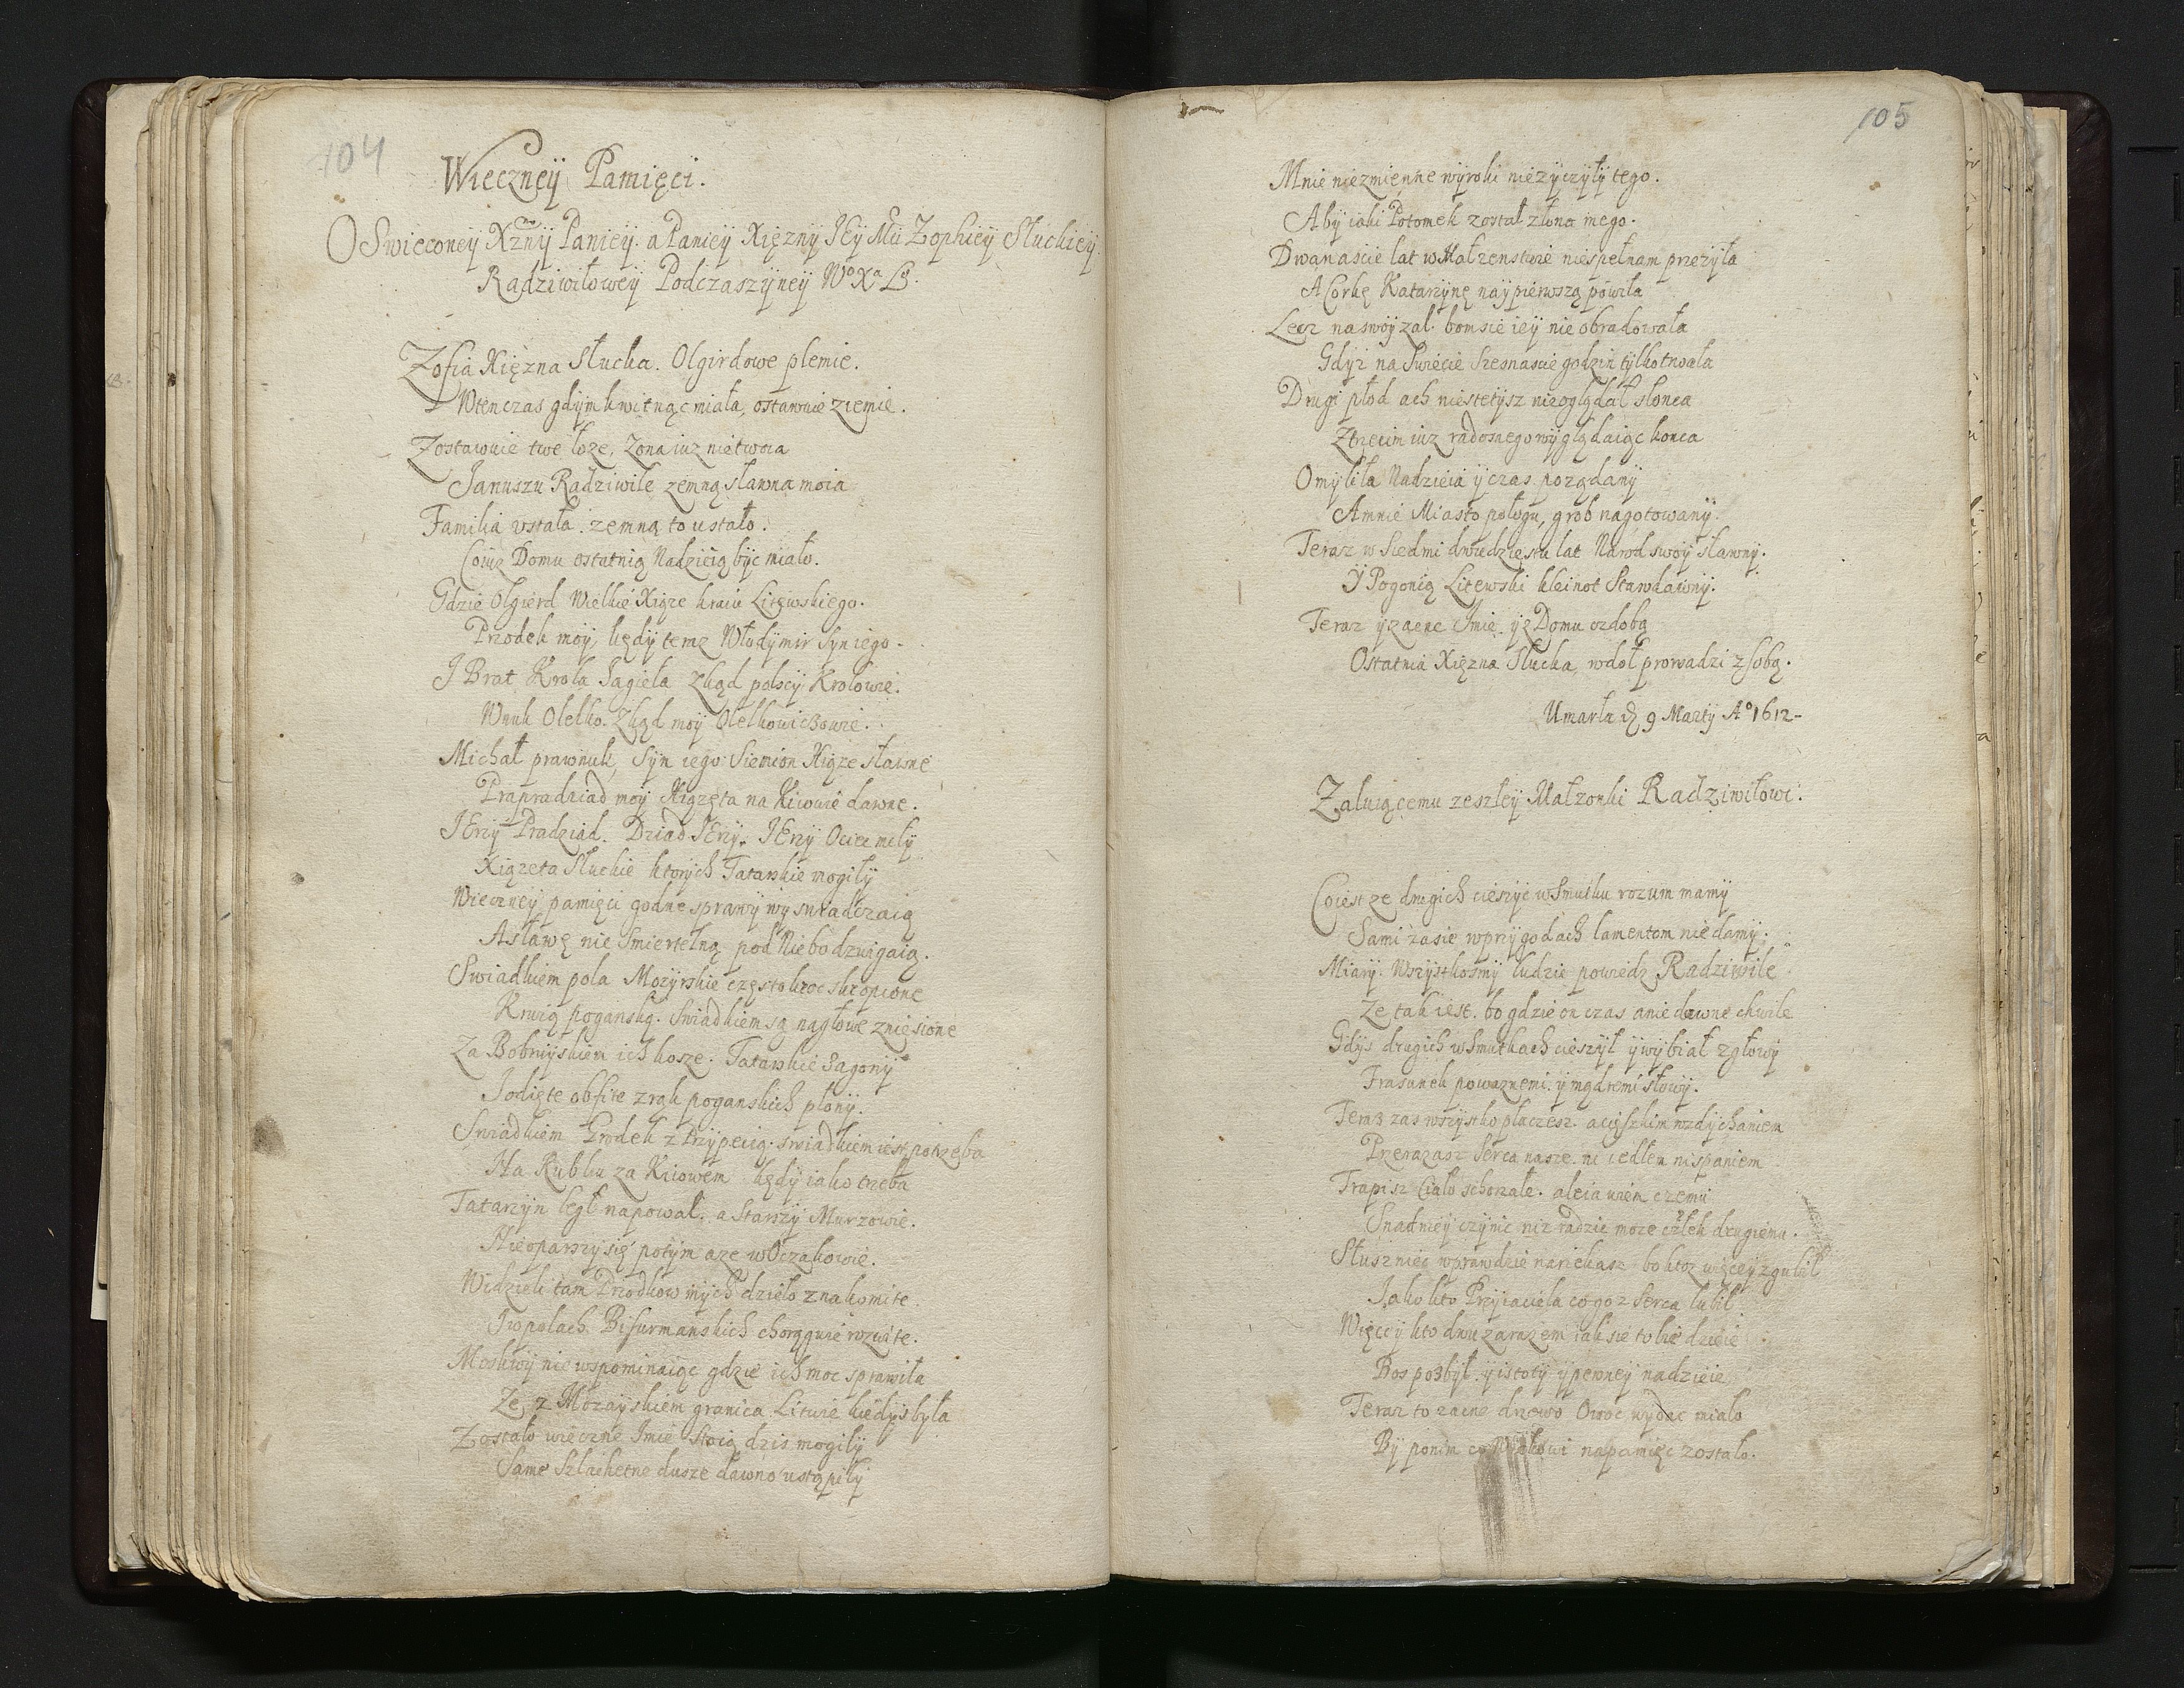 104
Wieczneÿ Pamięci.
OSwieconeÿ Xznÿ Panieÿ. a Panieÿ Xięznÿ JEÿ Mci Zophieÿ Sluckieÿ
Radziwiłoweÿ Podczaszÿneÿ Wº Xª Lº.
Zofia Xięzna Słucka. Olgirdowe plemie.
Wtenczas gdÿm kwitnąc miała, ostawuie ziemie.
Zostawuie twe łoze, Zona iuz nie twoia
Januszu Radziwile zemną sławna moia
Familia vstała. zemną to ustało.
Co iuz Domu ostatnią Nadzieią bÿc miało.
Gdzie Olgierd Wielkie Xiąze kraiu Litewskiego.
Przodek moÿ, kędÿ teraz Włodÿmir Sÿn iego.
J Brat Krola Jagieła zkąd polscÿ Krolowie.
Wnuk Olelko. Zkąd moÿ Olelkowiczowie.
Michał prawnuk, Sÿn iego Siemion Xiąze sławne
Prapradziad moÿ Xiązęta na Kiiowie dawne.
JErzÿ Pradziad. Dziad JErzÿ. JErzÿ Ociec miłÿ
Xiązęta Słuckie ktorÿch Tatarskie mogiłÿ
Wieczneÿ pamięci godne sprawÿ wÿswiadczaią
A sławę nie smiertelną pod Niebo dzwigaią.
Swiadkiem pola Mozÿrskie częstokroc skropione
Krwią poganską. Swiadkiem są nagłowe zniesione
Za Bobruÿskiem ich kosze. Tatarskie Sagonÿ
J odięte obfite zrąk poganskich plonÿ.
Swiadkiem Grodek z Prÿpecią. swiadkiem iest potrzeba
Na Rubku za Kiiowem kędÿ iako trzeba
Tatarzÿn legł napował. a Starszÿ Murzowie.
Nie oparszÿ się potÿm aze w Oczakowie.
Widzieli tam Przodkow mÿch dzieło znakomite.
J w polach Bisurmanskich chorągwie rozwite.
Moskwÿ nie wspominaiąc gdzie ich moc sprawiła
Ze z Mozaÿskiem granica Litwie kiedÿs bÿła
Zostało wieczne Jmie Stoią dzis mogiłÿ
Same Szlachetne dusze dawno ustąpiłÿ
105
Mnie niezmienne wÿroki nie zÿczÿłÿ tego.
Abÿ iaki Potomek został z łona mego.
Dwanascie lat w Małzenstwie niespełnam przezÿła
A Corkę Katarzÿnę naÿpierwszą powiła
Lecz na swoÿ zal. bom sie ieÿ nie obradowała
Gdÿz na Swiecie Szesnascie godzin tÿlko trwała
Drugi płod ach niestetÿsz nieoglądał słonca
Ztrzecim iuz radosnego wÿglądaiąc konca
Omÿliła Nadzieia ÿ czas poządanÿ
A mnie Miasto połogu, grob nagotowanÿ.
Teraz w Siedmi dwudziestu lat Narod swoÿ sławnÿ.
Ÿ Pogonią Litewski kleinot Starodawnÿ.
Teraz ÿ zacne Jmie ÿ z Domu ozdobą
Ostatnia Xięzna Słucka wdoł prowadzi z sobą.
Umarła 9 Martÿ Aº 1612
Załuiącemu zeszłeÿ Małzonki Radziwiłowi.
Co iest ze drugich cieszÿc w Smutku rozum mamÿ
Sami zasie w prÿgodach lamentom nie damÿ.
Miarÿ. Wszÿstkosmÿ ludzie powiedz Radziwile
Ze tak iest. bo gdzie on czas a nie dawne chwile
Gdÿs drugich w Smutkach cieszÿł ÿ wÿbiał z głowÿ
Frasunek powaznemi ÿ mądremi słowÿ.
Teraz zas wszÿstko płaczesz. a cięszkim wzdÿchaniem
Przerazasz Serca nasze. ni iedłem ni spaniem
Trapisz Ciało schorzałe. ale ia wiem czemu
Snadnieÿ czÿnic niz radzic moze człek drugiemu.
Słusznie wprawdzie narzekasz bo ktoz więceÿ zgubił
Jako kto Przÿiaciela co go z Serca lubił
Więceÿ kto dwu zarazem iak sie tobie dzieie
Bos pozbÿł. ÿ istotÿ ÿ pewneÿ nadzieie
Teraz to zacne drzewo Owoc wÿdac miało
Bÿ ponim napamięc zostało.